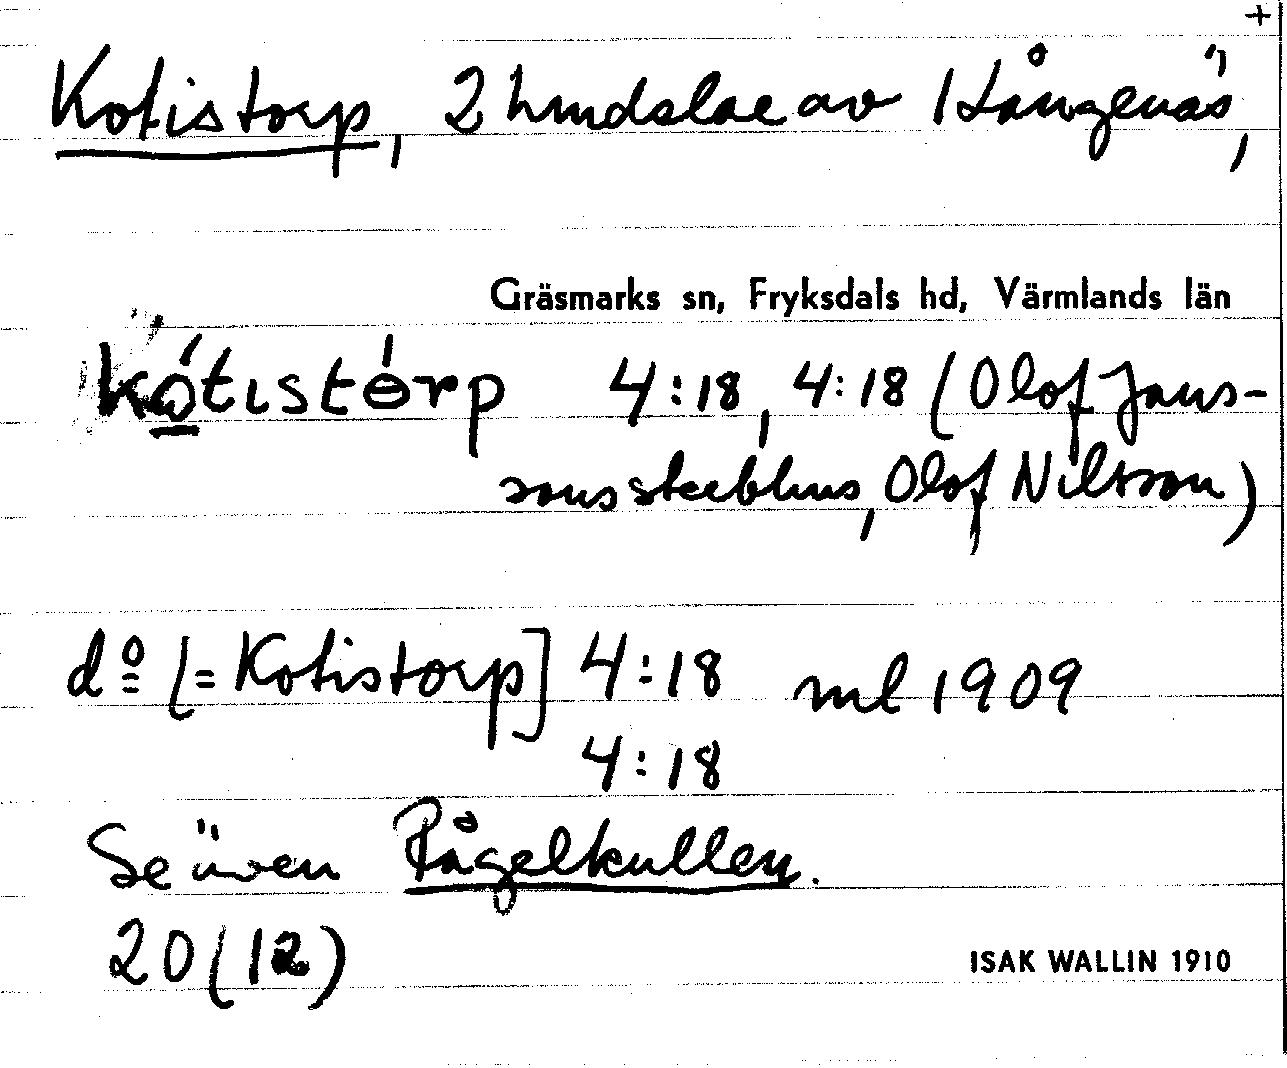 +
Kotistorp, 2 hmdslae av 1 Långenäs,
Gräsmarks sn, Fryksdals hd, Värmlands län
kó̲tıstɵ́rp 4:18, 4:18 (Olof Jans-
sons sterbhus, Olof Nilsson)
do [= Kotistorp] 4:18 ml 1909
4:18
Se även Pågelkullen.
20 (12)
ISAK WALLIN 1910